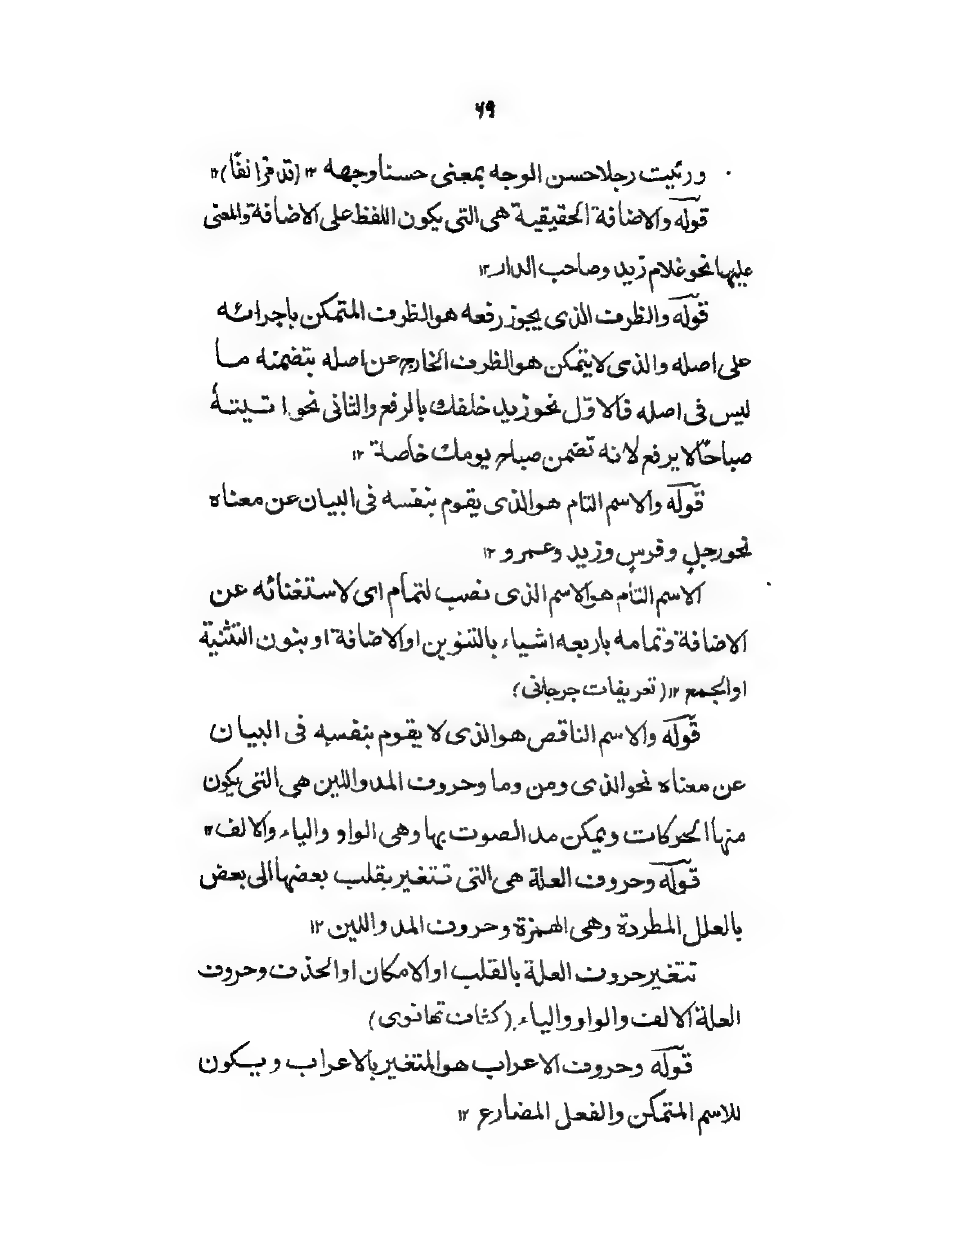 ۶۹
ورئیت رجلا حسن الوجه بمعنی حسنا وجهه ۱۲ (قد قرانفًا) ۱۲
قوله والاضافة الحقیقیة هی التی یکون اللفظ علی الاضافة والمعنی
علیها نحو غلام زید وصاحب الدار ۱۲
قوله والظرف الذی یجوز رفعه هو الظرف المتمکن باجرائه
علی اصله والذی لا یتمکن هو الظرف الخارج عن اصله بتضمنه ما
لیس فی اصله فالاوّل نحو زید خلفك بالرفع والثانی نحو اتیتهٔ
صباحًا لا یرفع لانه تضمن صباح یومك خاصة ۱۲
قوله والاسم التام هو الذی یقوم بنفسه فی البیان عن معناه
نحو رجلٍ وفرسٍ وزید وعمرو ۱۲
الاسم التام هو الاسم الذی نصب لتمام ای لاستغنائه عن
الاضافة وتمامه باربعه اشیاء بالتنوین او الاضافة او بنون التثنیة
او الجمع ۱۲ (تعریفات جرجانی)
قوله والاسم الناقص هو الذی لا یقوم بنفسه فی البیان
عن معناه نحو الذی ومن وما وحروف المد واللین هی التی یکون
منها الحرکات ویمکن مد الصوت بها وهی الواو والیاء والالف ۱۲
قوله وحروف العلة هی التی تتغیر بقلب بعضها الی بعض
بالعلل المطردة وهی الهمزة وحروف المد واللین ۱۲
تتغیر حروف العلة بالقلب او الامکان او الحذف وحروف
العلة الالف والواو والیاء (کشاف تهانوی)
قوله وحروف الاعراب هو المتغیر بالاعراب ویکون
للاسم المتمکن والفعل المضارع ۱۲